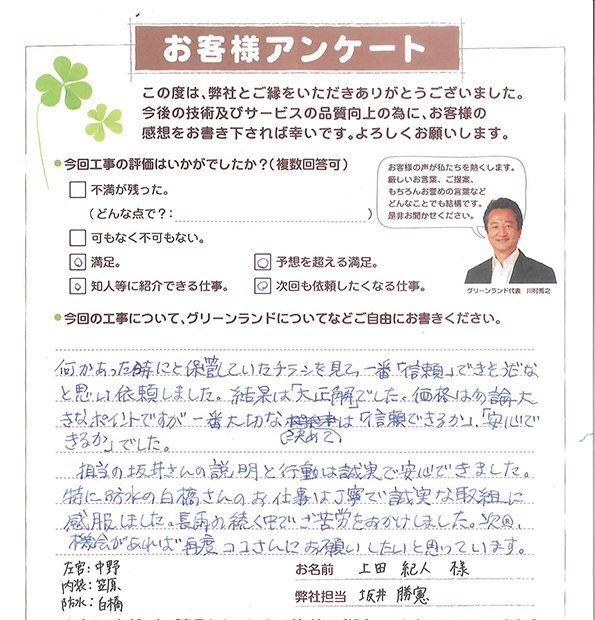 お客様アンケート
この度は、弊社とご縁をいただきありがとうございました。
今後の技術及びサービスの品質向上の為に、お客様の
感想をお書き下されば幸いです。よろしくお願いします。
●今回工事の評価はいかがでしたか?(複数回答可)
不満が残った。
(どんな点で?: )
可もなく不可もない。
満足。
予想を超える満足。
知人等に紹介できる仕事。
次回も依頼したくなる仕事。
お客様の声が私たちを熱くします。
厳しいお言葉、ご提案、
もちろんお誉めの言葉など
どんなことでも結構です。
是非お聞かせください。
グリーンランド代表 川村秀之
●今回の工事について、グリーンランドについてなどご自由にお書きください。
何かあった時にと保管していたチラシを見て、一番「信頼」できそだな
と思い依頼しました。結果は「大正解」でした。価格は勿論大
きなポイントですが一番大切な は「信頼できるか」、「安心で
(決めて)
きるか」でした。
担当の坂井さんの説明と行動は誠実で安心できました。
特に防水の白橋さんのお仕事は丁寧で誠実な取組に
感服しました。長雨の続く中でご苦労をおかけしました。次回、
機会があれば再度ココさんにお願いしたいと思っています。
左官:中野
内装:笠原
防水:白橋
お名前 上田 紀人 様
弊社担当 坂井 勝憲